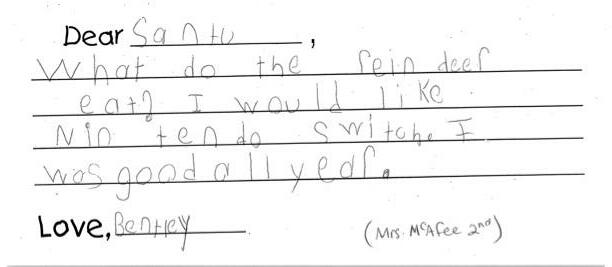 Dear Santu,
What do the reindeer
eat? I would like
Nintendo switch. I
was good all year.
Love, Bentley
(Mrs. McAfee 2nd)